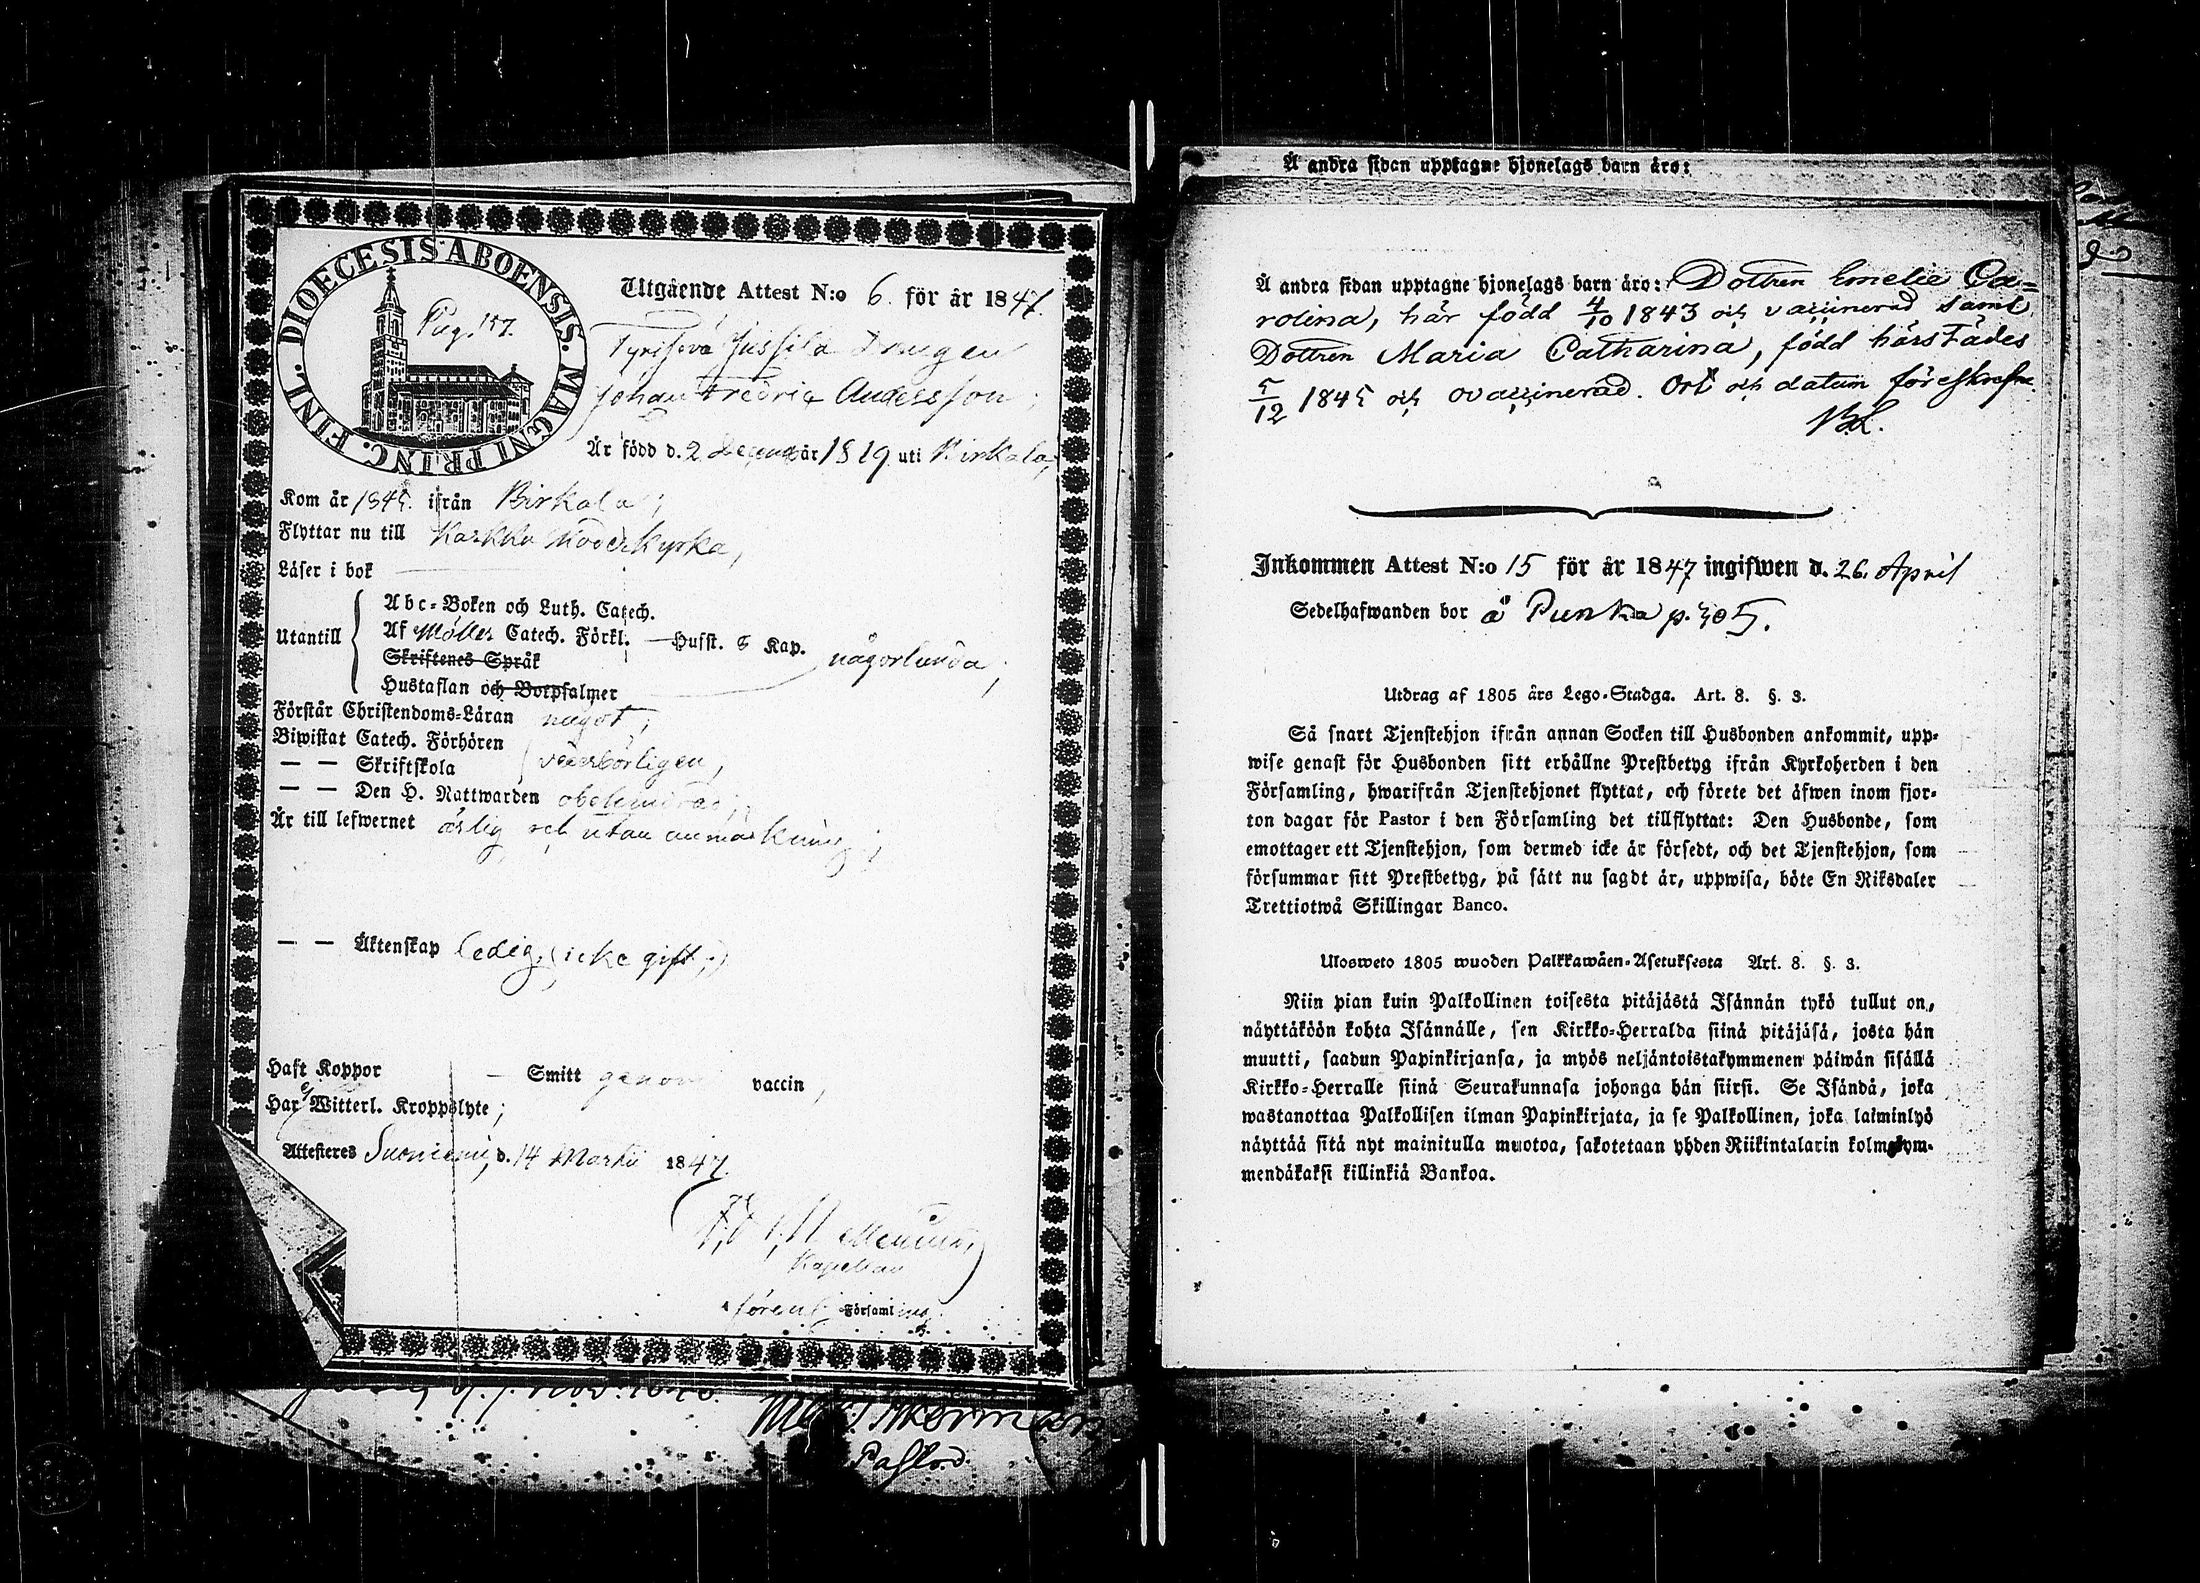 DIOECESIS ABOENSIS. MAGNI PRINC. FINL.
Pag. 157.
Utgående Attest N:o 6. för år 1847.
Jussila Drengen
Johan Fredric Andersson;
Är född d. 2 år 1819 uti Birkala;
Kom år 1845. ifrån Birkala;
Flyttar nu till Karkku Moderkyrka,
Läser i bok
Utantill
Abc-Boken och Luth. Catech.
Af Möller Catech. Förkl. — Husst. 8 Kap. någorlunda;
Skriftenes Språk
Hustaflan och Botpsalmer
Förstår Christendoms-Läran något;
Biwistat Catech. Förhören
— — Skriftskola vederbörligen,
— — Den H. Nattwarden obehindrad;
Är till lefwernet ärlig och utan anmärkning;
— — Äktenskap ledig, (icke gift;)
Haft Koppor — Smitt genom vaccin,
Har ej Witterl. Kroppslyte;
Attesteres Suoniemi, d. 14 Martii 1847.
Kapellan
Församling.
Pastor
Å andra sidan upptagne hjonelags barn äro:
Å andra sidan upptagne hjonelags barn äro: Dottren Emelie Ca=
rolina, här född 4/10 1843 och vaccinerad samt
Dottren Maria Catharina, född härstädes
5/12 1845 och ovaccinerad. Ort och datum föreskrefne.
Inkommen Attest N:o 15 för år 1847 ingifwen d. 26. April
Sedelhafwanden bor å Punka p. 305.
Utdrag af 1805 års Lego-Stadga. Art. 8. §. 3.
Så snart Tjenstehjon ifrån annan Socken till Husbonden ankommit, upp-
wise genast för Husbonden sitt erhållne Prestbetyg ifrån Kyrkoherden i den
Församling, hwarifrån Tjenstehjonet flyttat, och förete det äfwen inom fjor-
ton dagar för Pastor i den Församling det tillflyttat: Den Husbonde, som
emottager ett Tjenstehjon, som dermed icke är försedt, och det Tjenstehjon, som
försummar sitt Prestbetyg, på sätt nu sagdt är, uppwisa, böte En Riksdaler
Trettiotwå Skillingar Banco.
Ulosweto 1805 wuoden Palkkawäen-Asetuksesta Art. 8. §. 3.
Niin pian kuin Palkollinen toisesta pitäjästä Isännän tykö tullut on,
näyttäköön kohta Isännälle, sen Kirkko-Herralda siinä pitäjäsä, josta hän
muutti, saadun Papinkirjansa, ja myös neljäntoistakymmenen päiwän sisällä
Kirkko-Herralle siinä Seurakunnasa johonga hän siirsi. Se Isändä, joka
wastanottaa Palkollisen ilman Papinkirjata, ja se Palkollinen, joka laiminlyö
näyttää sitä nyt mainitulla muotoa, sakotetaan yhden Riikintalarin kolmekym-
mendäkaksi killinkiä Bankoa.